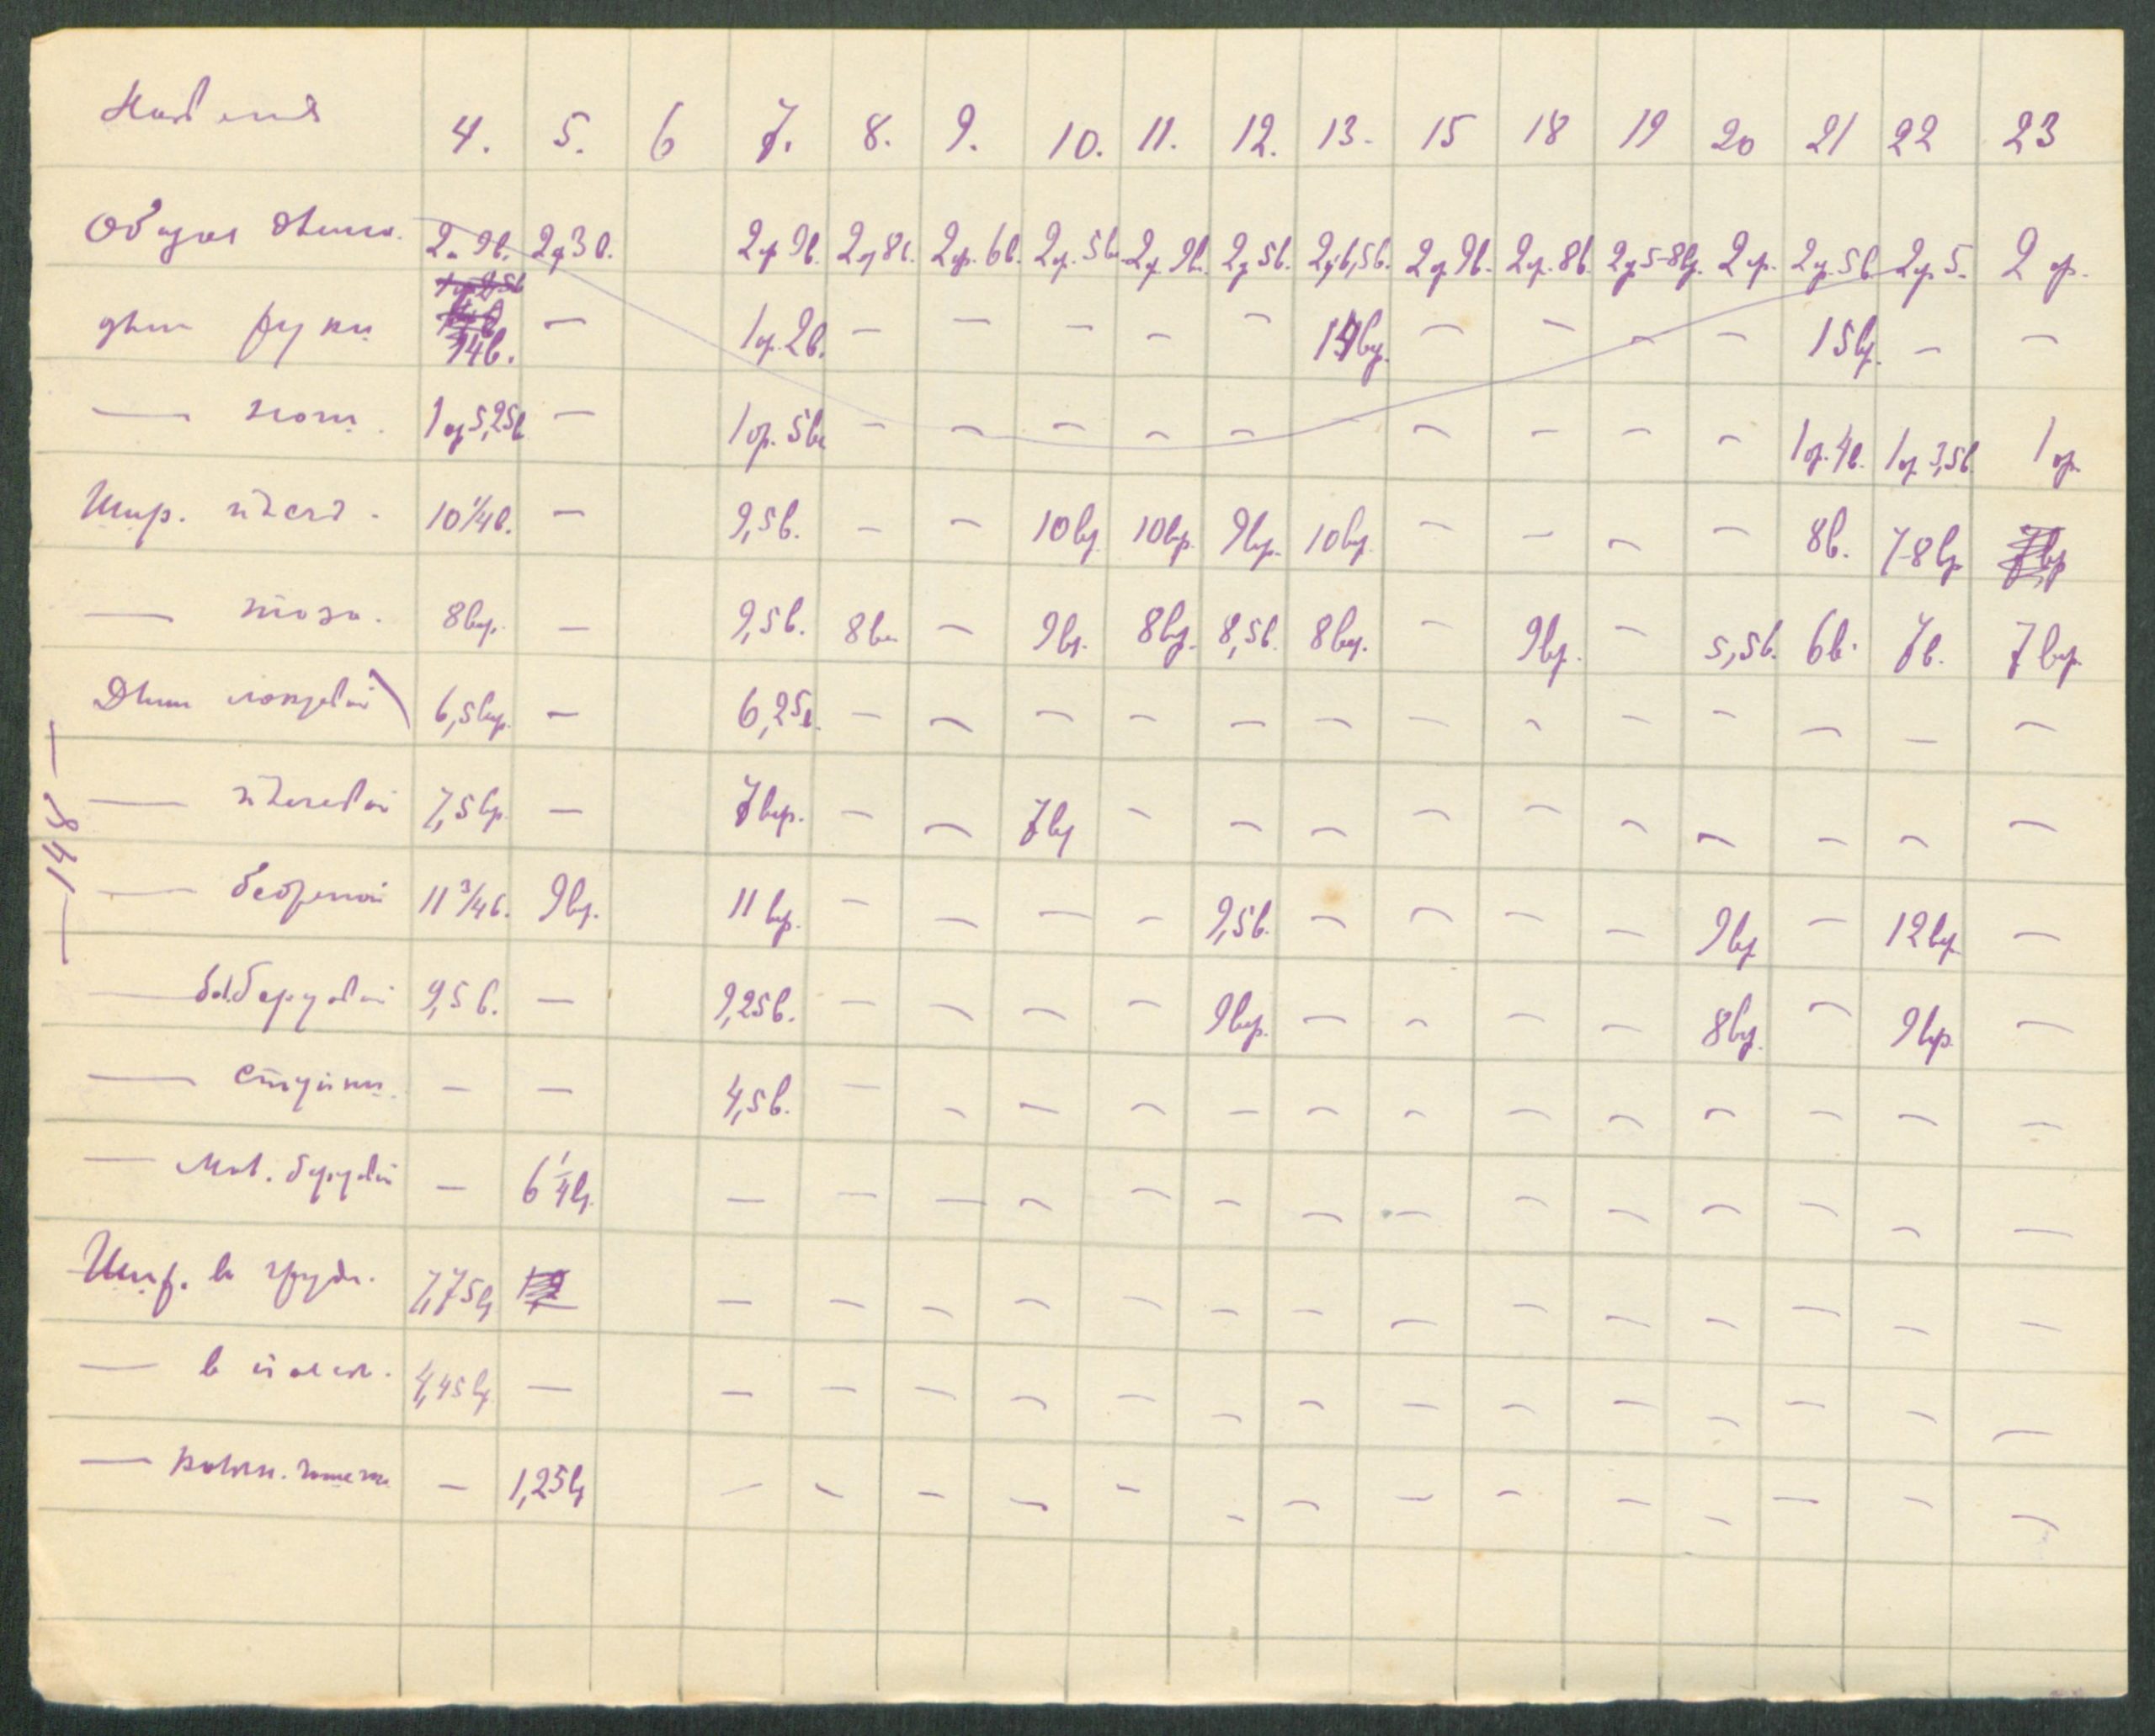 4. 5. 6 7. 8. 9. 10. 11. 12. 13. 15 18 19 20 21 22 23
Общая длина. 2а. 9в. 2а 3в. 2ар 9в. 2ар 8в. 2ар. 6в. 2ар. 5в. 2ар. 9в. 2ар 5в. 2ар 6,5в. 2ар 9в. 2ар. 8в. 2ар 5-8вр. 2 ар. 2ар. 5в 2ар. 5. 2 ар.
длин руки 14в. — 1ар. 2в. — — — — — 14вер. — — — — 15вер. — —
— ноги. 1ар 5,25в — 1 ар. 5ве — — — — — — — — — 1ар. 4в. 1ар. 3,5в. 1 ар.
Шир. плеч. 10 1/4в. — 9,5в. — — 10вер. 10вер. 9вер. 10вер. — — — — 8в. 7-8вр.
— таза. 8вер. — 9,5в. 8ве — 9вр. 8вер. 8,5в. 8вер. — 9вр. — 5,5в. 6в. 7в. 7 вер.
Длин локтевой 6,5вер. — 6,25в. — — — — — — — — — — — — —
— плечевой 7,5вр. — 7вер. — — 7вр — — — — — — — — — —
— бедреной 11 3/4в. 9вр. 11 вер. — — — — 9,5в. — — — — 9вр — 12вер —
— бол. берцовой 9,5в. — 9,25в. — — — — 9вер. — — — — 8вер. — 9вр. —
— ступни. — — 4,5в. — — — — — — — — — — — — —
— мал. берцовой — 6 1/4вр. — — — — — — — — — — — — — —
Шир. в груди. 7,75вр — — — — — — — — — — — — — —
— в 4,45вр. — — — — — — — — — — — — — — —
— — 1,25вр — — — — — — — — — — — — — —
— 148 —